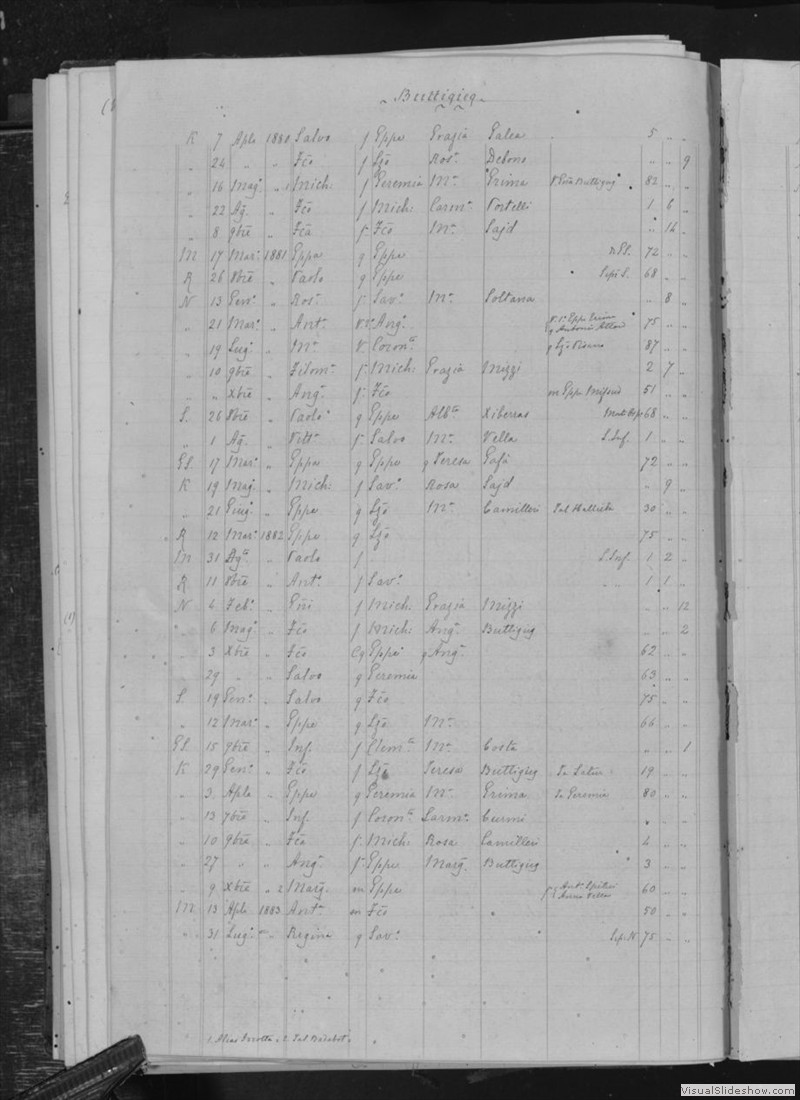 Buttigieg
K 7 Aple 1880 Salvo f Eppe Grazia Galea 5 " "
" 24 " " Fcõ f Ljõ Ros.ᵃ Debono " " 9
" 16 Mag.º " 1 Mich: f Geremia M.ª Grima 82 " "
" 22 Ag. " Fcõ f Mich: Carm.ª Portelli 1 6 "
" 8 9bre " Fcã f Fcõ M.ª Sajd " 14
M 17 Mar.º 1881 Eppa g Eppe 72 " "
R 26 8bre " Paolo g Eppe 68 " "
N 13 Gen.º " Ros.ᵃ f Sav.º M.ª Soltana " 8 "
" 21 Mar.º " Ant.ª Ang.º 75 " "
" 19 Lug.º " M.ª V. Coron.ᵗᵒ 87 " "
" 10 9bre " Filom.ª f Mich: Grazia Mizzi 2 7 "
" " Xbre " Ang.ª f Fcõ m Eppe Mifsud 51 "
S. 26 8bre " Paolo g Eppe Alb.ᵗᵃ Xiberras 68 " "
" 1 Ag. " Vitt.ª f Salvo M.ª Vella S. Inf. 1 " "
GS. 17 Mar.º " Eppa g Eppe g Teresa Gafà 72 " "
K 19 Mag.º " Mich: f Sav.º Rosa Sajd " 9 "
" 21 Giug.º " Eppe g Ljõ M.ª Camilleri 30 " "
R 12 Mar.º 1882 Eppe g Ljõ 75 " "
M 31 Ag. " Paolo f S. Inf. 1 2 "
R 11 8bre " Ant.º f Sav.º 1 1 "
N 4 Feb.º " f Mich: Grazia Mizzi " " 12
" 6 Mag.º " Fcõ f Mich: Ang.ª Buttigieg " " 2
" 3 Xbre " Fcõ Cg Eppe g Ang.ª 62 " "
" 29 " " Salvo g Geremia 63 " "
S. 19 Gen.º " Salvo g Fcõ 75 " "
" 12 Mar.º " Eppe g Ljõ M.ª 66 " "
GS. 15 9bre " Inf. f Clem.ᵗᵉ M.ª Costa " " 1
K 29 Gen.º " Fcõ f Ljõ Teresa Buttigieg 19 " "
" 3 Aple " Eppe g Geremia M.ª Grima Ta Geremia 80 " "
" 13 7bre " Inf. f Coron.ᵗᵒ Carm.ª Curmi " "
" 10 9bre " Fcã f Mich: Rosa Camilleri 4 " "
" 27 " " Ang.ª f Eppe Marg.ª Buttigieg 3 "
" 9 Xbre " 2 Marg.ª m Eppe 60 " "
M 13 Aple 1883 Ant.ª m Fcõ 50 " "
" 31 Lug.º " Regina g Sav.º Sep: N. 75 " "
VisualSlideshow.com